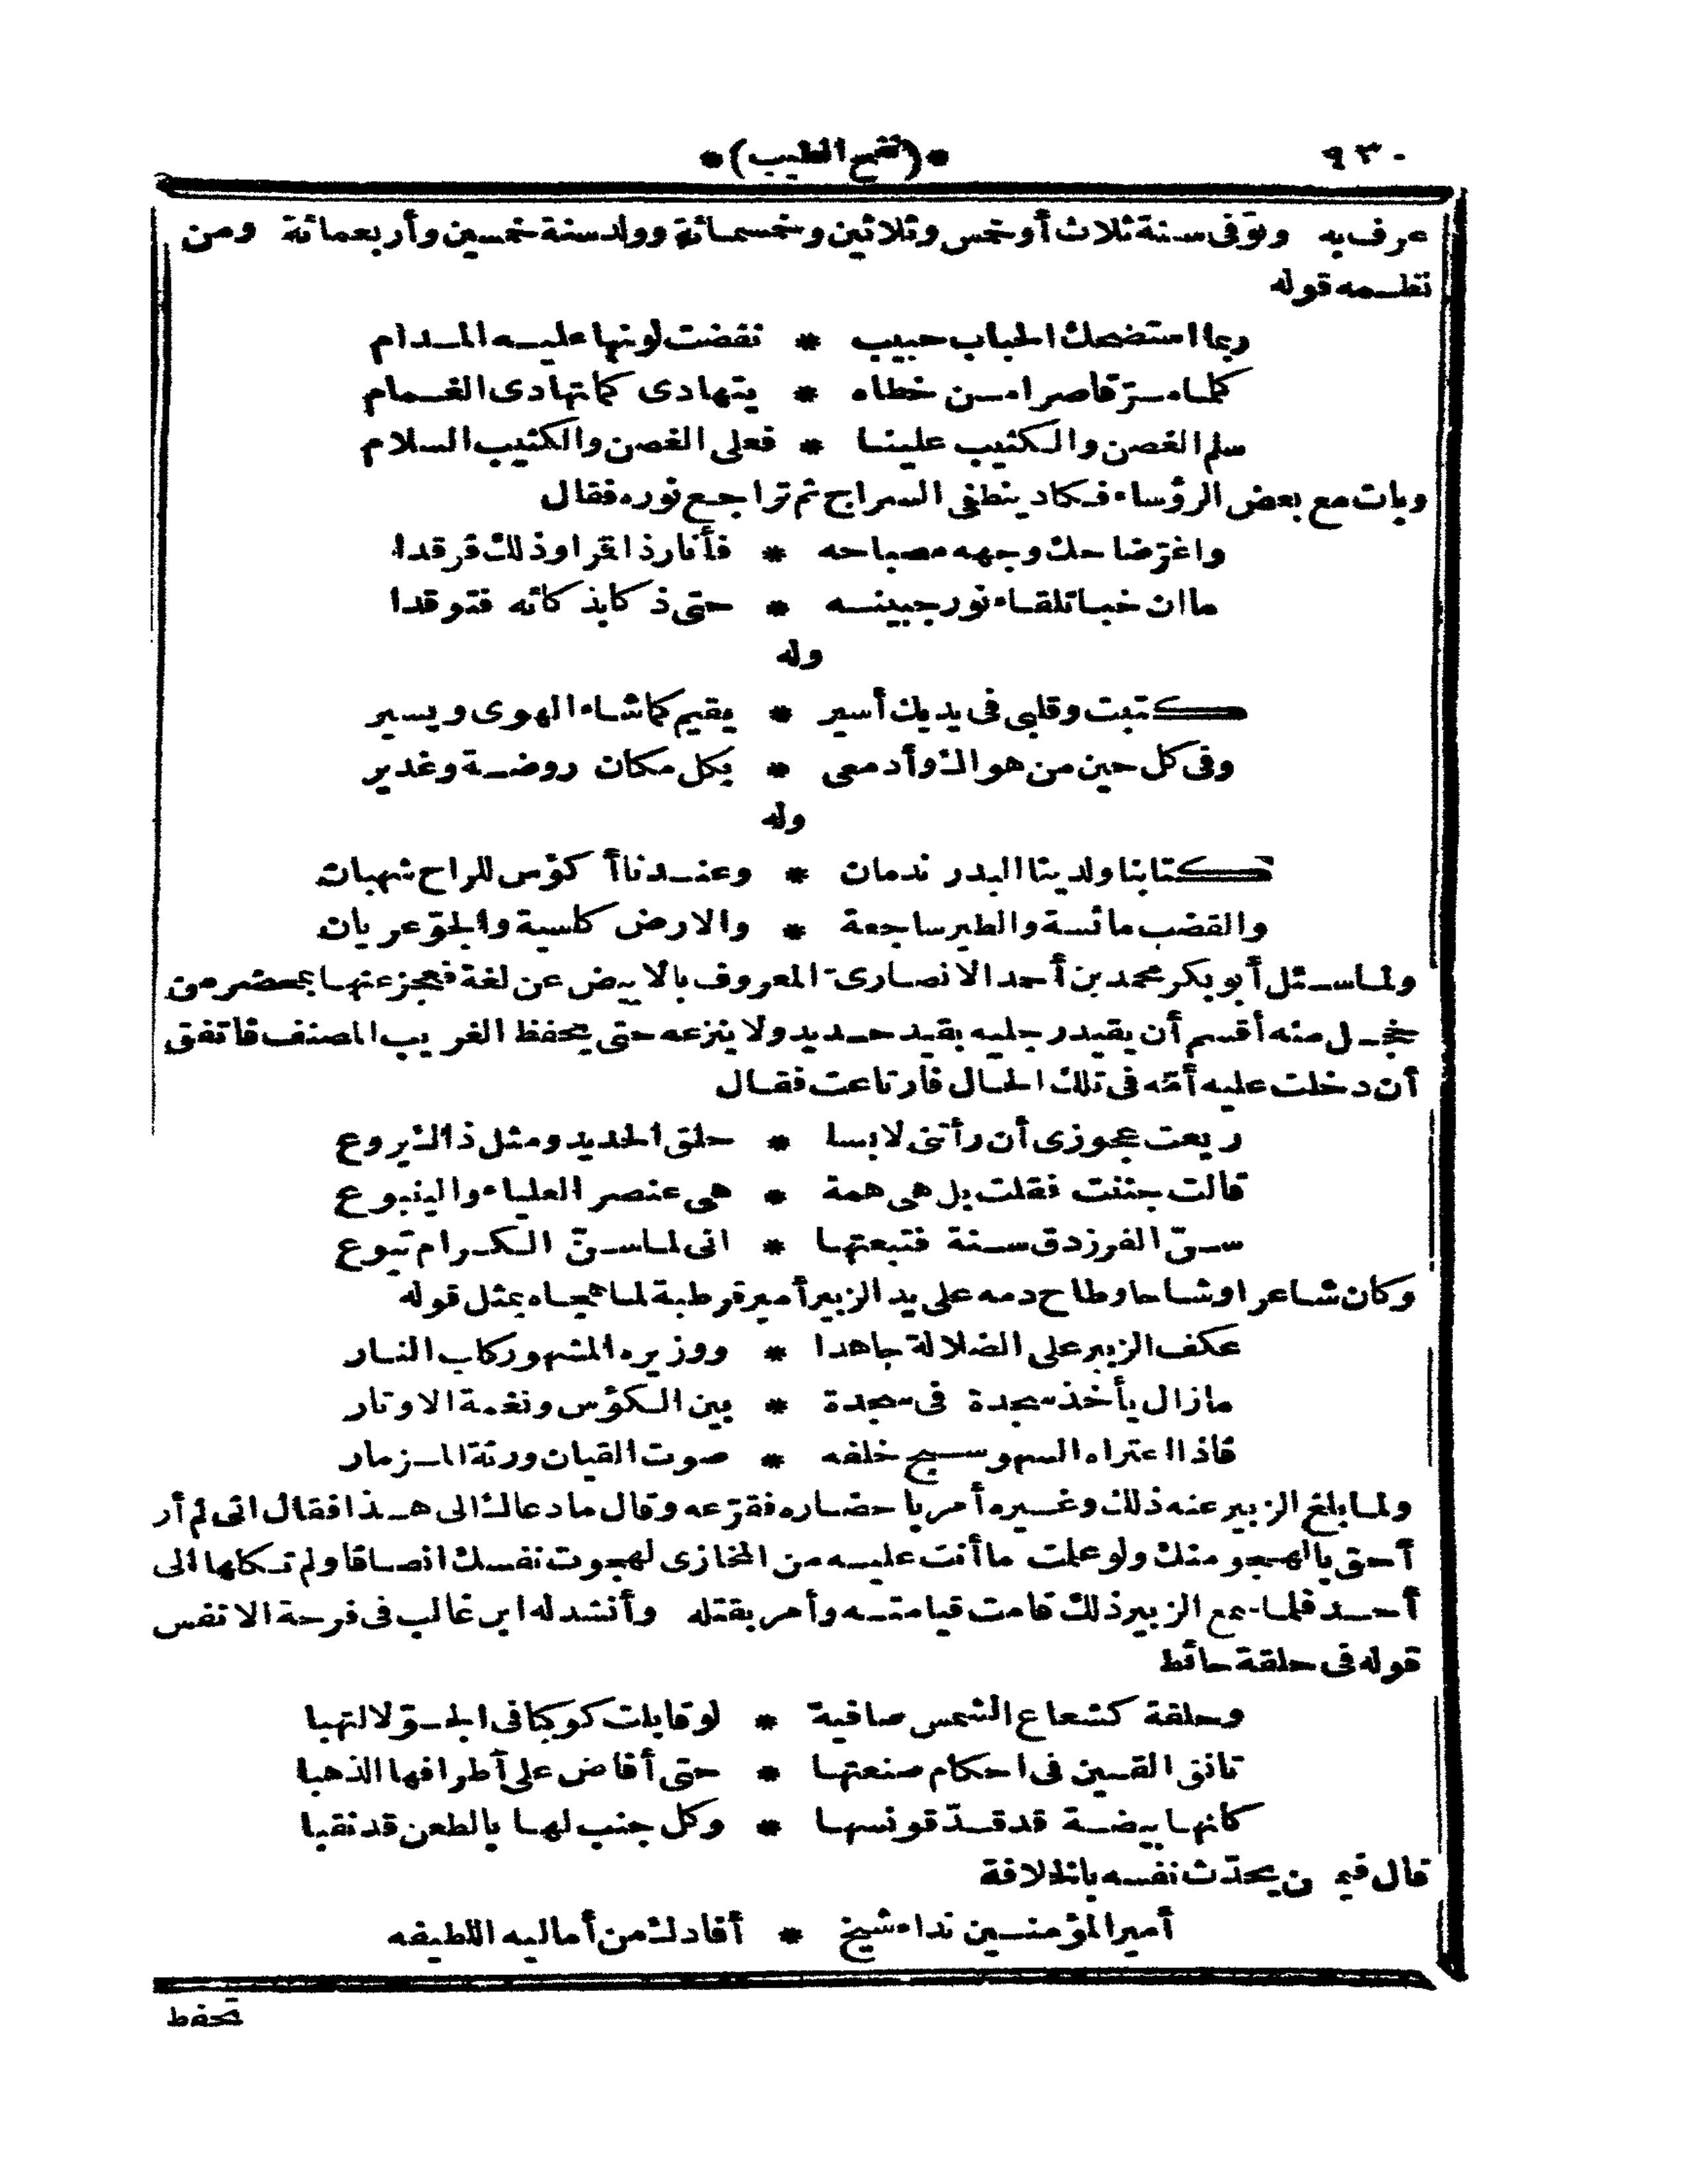 ٩٣٠
*(نفح الطيب)*
عرف به وتوفى سنة ثلاث أو خمس وثلاثين وخمسمائة وولد سنة خمسين وأربعمائة ومن
نظمه قوله
ربما استضحك الحباب حبيب * نفضت لونها عليه المدام
كلما مرّ قاصرا من خطاه * يتهادى كما تهادى الغمام
سلم الغصن والكثيب علينا * فعلى الغصن والكثيب السلام
وبات مع بعض الرؤساء فكاد ينطفى السراج ثم تراجع نوره فقال
واغرّ ضاحك وجهه مصباحه * فأنار ذا قمرا وذلك فرقدا
ما ان خبا تلقاء نور جبينه * حتى ذكا بذكائه فتوقدا
وله
كتبت وقلبى فى يديك أسير * يقيم كما شاء الهوى ويسير
وفى كل حين من هواك وأدمعى * بكل مكان روضة وغدير
وله
كتابنا ولدينا البدر ندمان * وعندنا أكؤس للراح شهبات
والقضب مائسة والطير ساجعة * والارض كاسية والجوّ عريان
ولما سئل أبو بكر محمد بن أحمد الانصارىّ المعروف بالابيض عن لغة فعجز عنها بمحضر من
خجل منه أقسم أن يقيد رجليه بقيد حديد ولا ينزعه حتى يحفظ الغريب المصنف فاتفق
أن دخلت عليه أمّه فى تلك الحال فارتاعت فقال
ريعت عجوزى أن رأتنى لابسا * حلق الحديد ومثل ذاك يروع
قالت جننت فقلت بل هى همة * هى عنصر العلياء والينبوع
سنّ الفرزدق سنة فتبعتها * انى لما سنّ الكرام تبوع
وكان شاعرا وشاحا وطاح دمه على يد الزبير أمير قرطبة لما هجاه بمثل قوله
عكف الزبير على الضلالة جاهدا * ووزيره المشهور كاب النار
ما زال يأخذ سجدة فى سجدة * بين الكؤس ونغمة الاوتار
فاذا اعتراه السهو سبح خلفه * صوت القيان ورنة المزمار
ولما بلغ الزبير عنه ذلك وغيره أمر باحضاره فقرّعه وقال ما دعاك الى هذا فقال انى لم أر
أحق بالهجو منك ولو علمت ما أنت عليه من المخازى لهجوت نفسك انصافا ولم تكلها الى
أحد فلما سمع الزبير ذلك قامت قيامته وأمر بقتله وأنشد له ابن غالب فى فرحة الانفس
قوله فى حلقة حائط
وحلقة كشعاع الشمس صافية * لو قابلت كوكبا فى الجوّ لالتهبا
تانق القين فى احكام صنعتها * حتى أفاض على أطرافها الذهبا
كانها بيضة قد قدّ قونسها * وكل جنب لها بالطعن قد نقبا
قال فيمن يحدّث نفسه بالخلافة
أمير المؤمنين نداء شيخ * أفادك من أماليه اللطيفه
تحفظ